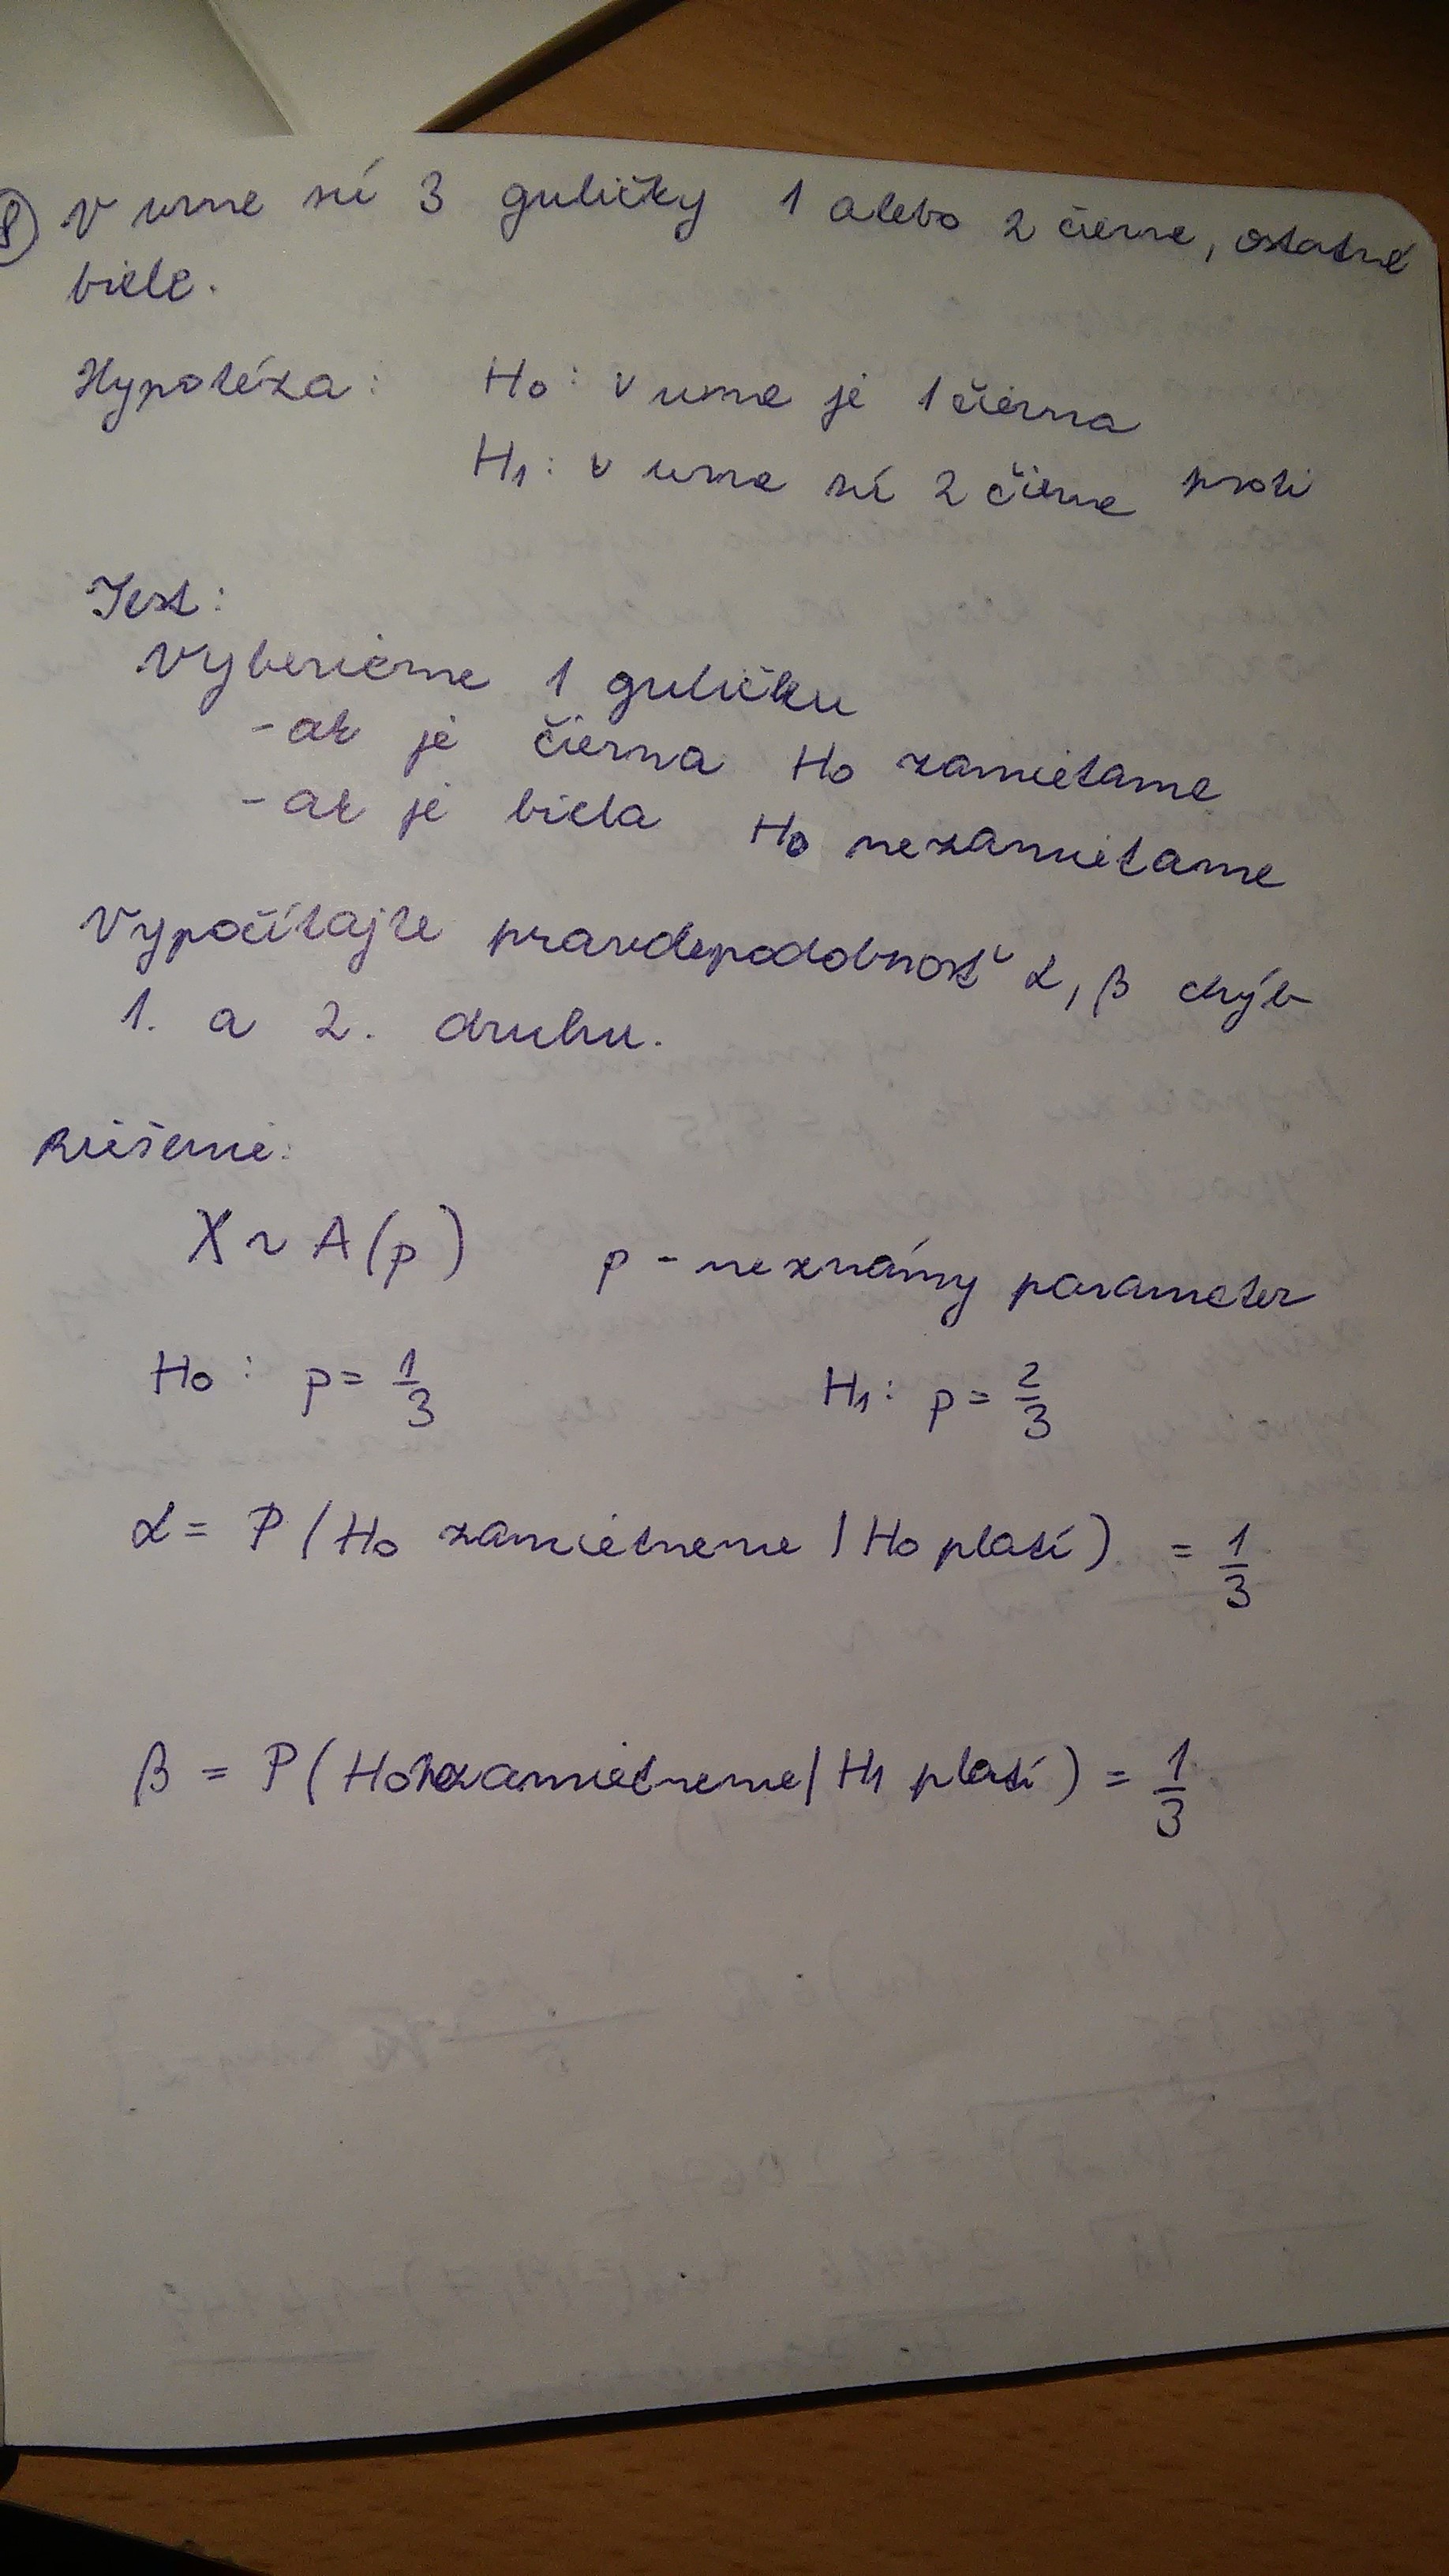 8) V urne sú 3 guličky 1 alebo 2 čierne, ostatné
biele.
Hypotéza: H0: v urne je 1 čierna
H1: v urne sú 2 čierne proti
Test:
Vyberieme 1 guličku
- ak je čierna H0 zamietame
- ak je biela H0 nezamietame
Vypočítajte pravdepodobnosť α, β chýb
1. a 2. druhu.
Riešenie:
X ~ A(p) p - neznámy parameter
H0: p = 1/3 H1: p = 2/3
α = P(H0 zamietneme | H0 platí) = 1/3
β = P(H0 nezamietneme | H1 platí) = 1/3